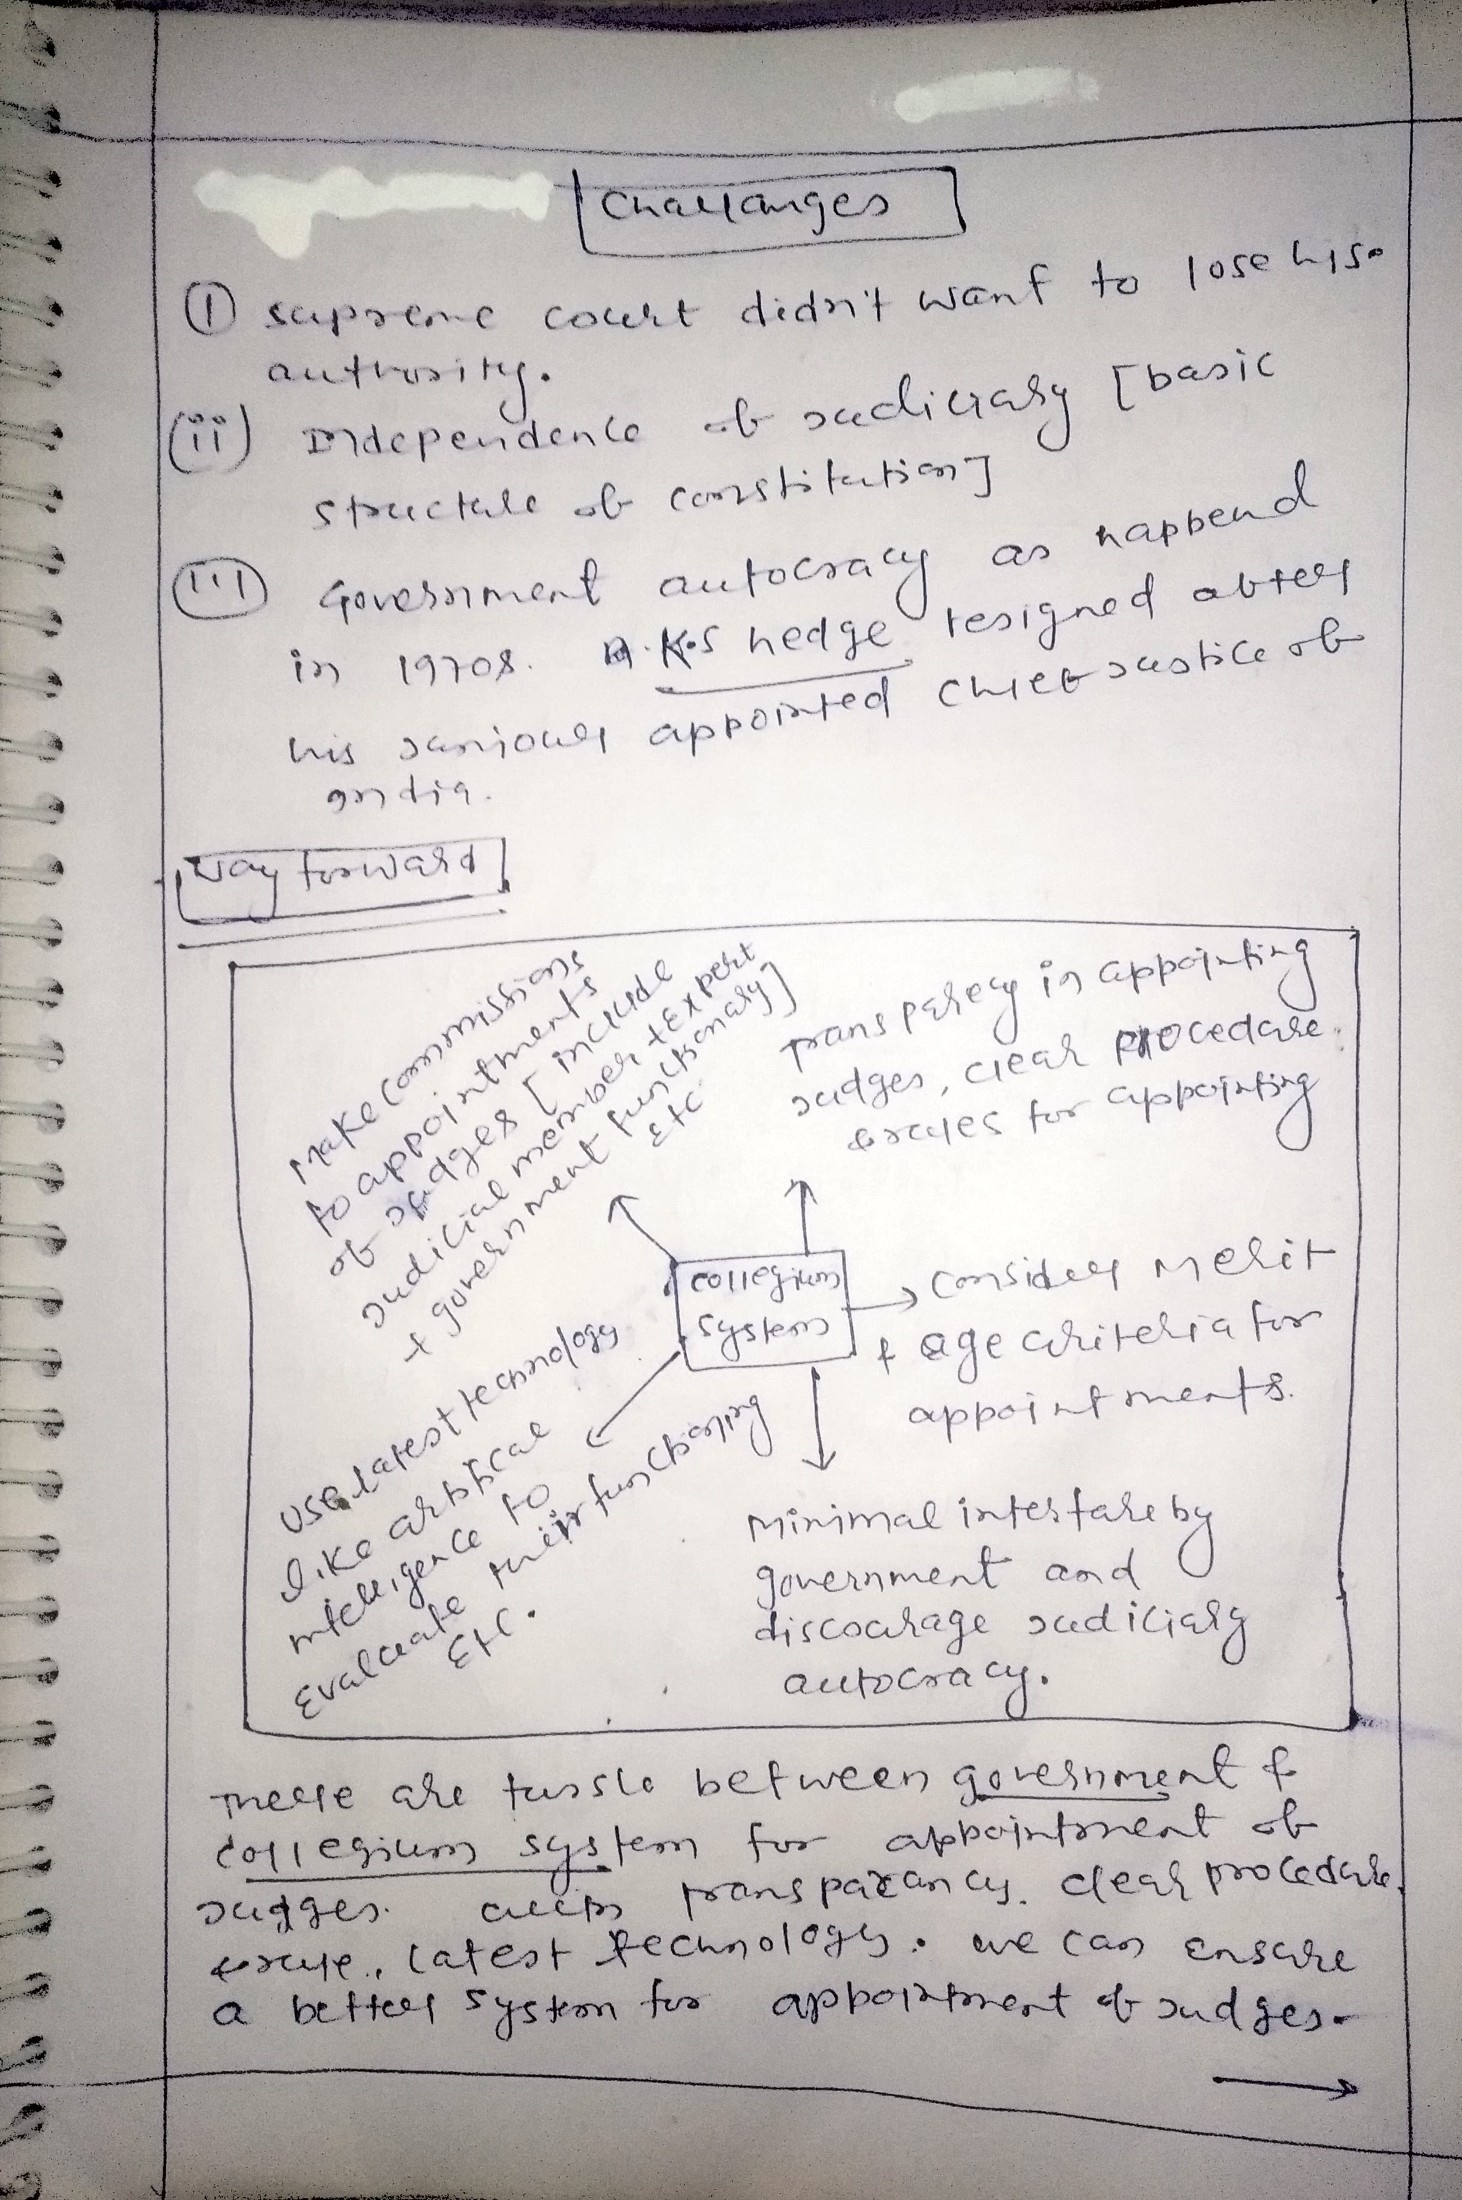 Challanges
(i) supreme court didn't want to lose his
authority.
(ii) Independence of Judiciary [basic
structure of constitution]
(iii) Government autocracy as happend
in 1970s. K.S hedge resigned after
his juniour appointed chief Justice of
India.
Way forward
Make commissions
to appointments
of Judges [include
Judicial member + Expert
+ government functionary]
Etc
Transparecy in appointing
Judges, clear procedure
& rules for appointing
collegium
system
Consider Merit
& age criteria for
appointments.
Use latest technology
like artifical
intelligence to
Evaluate their functioning
Etc.
Minimal interfare by
government and
discourage Judiciary
autocracy.
There are tussle between government &
collegium system for appointment of
Judges. transparancy. clear procedure,
& rule, latest technology. we can ensure
a better system for appointment of Judges.